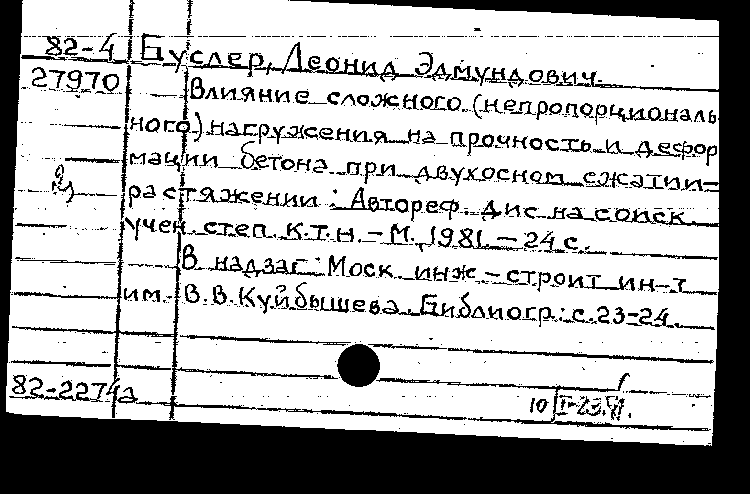 82-4 Буслер, Леонид Эдмундович.
27970 Влияние сложного (непропорциональ
ного) нагружения на прочность и дефор
мации бетона при двухосном сжатии-
растяжении : Автореф. дис на соиск.
учен степ. к.т.н. - М., 1981. - 24 с.
В надзаг : Моск. инж-строит ин-т
им. В.В. Куйбышева. Библиогр.: с. 23-24.
82-2274а
10